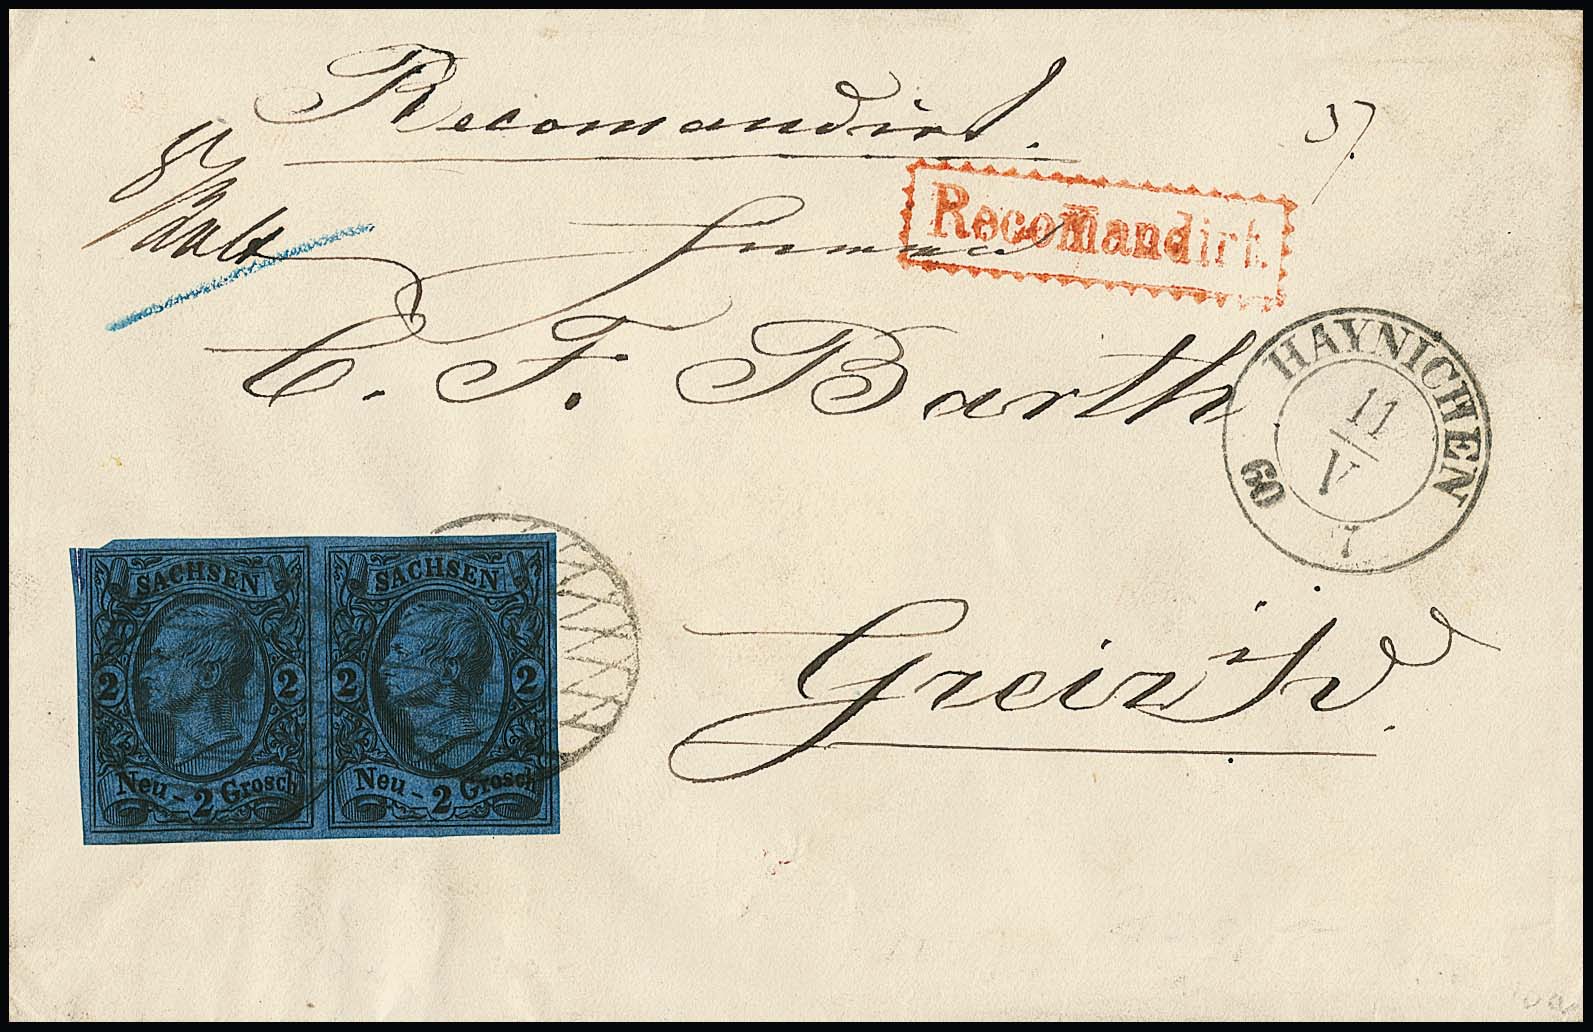 Recomandirt.
Recomandirt.
C. F. Barth
HAYNICHEN
11
V
60
7
Greiz i/V.
SACHSEN SACHSEN
2 2 2 2
Neu - 2 Grosch Neu - 2 Grosch